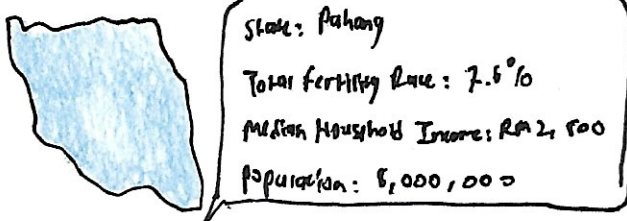 State: Pahang
Total Fertility Rate: 7.6%
Median Household Income: RM 2,800
Population: 8,000,000